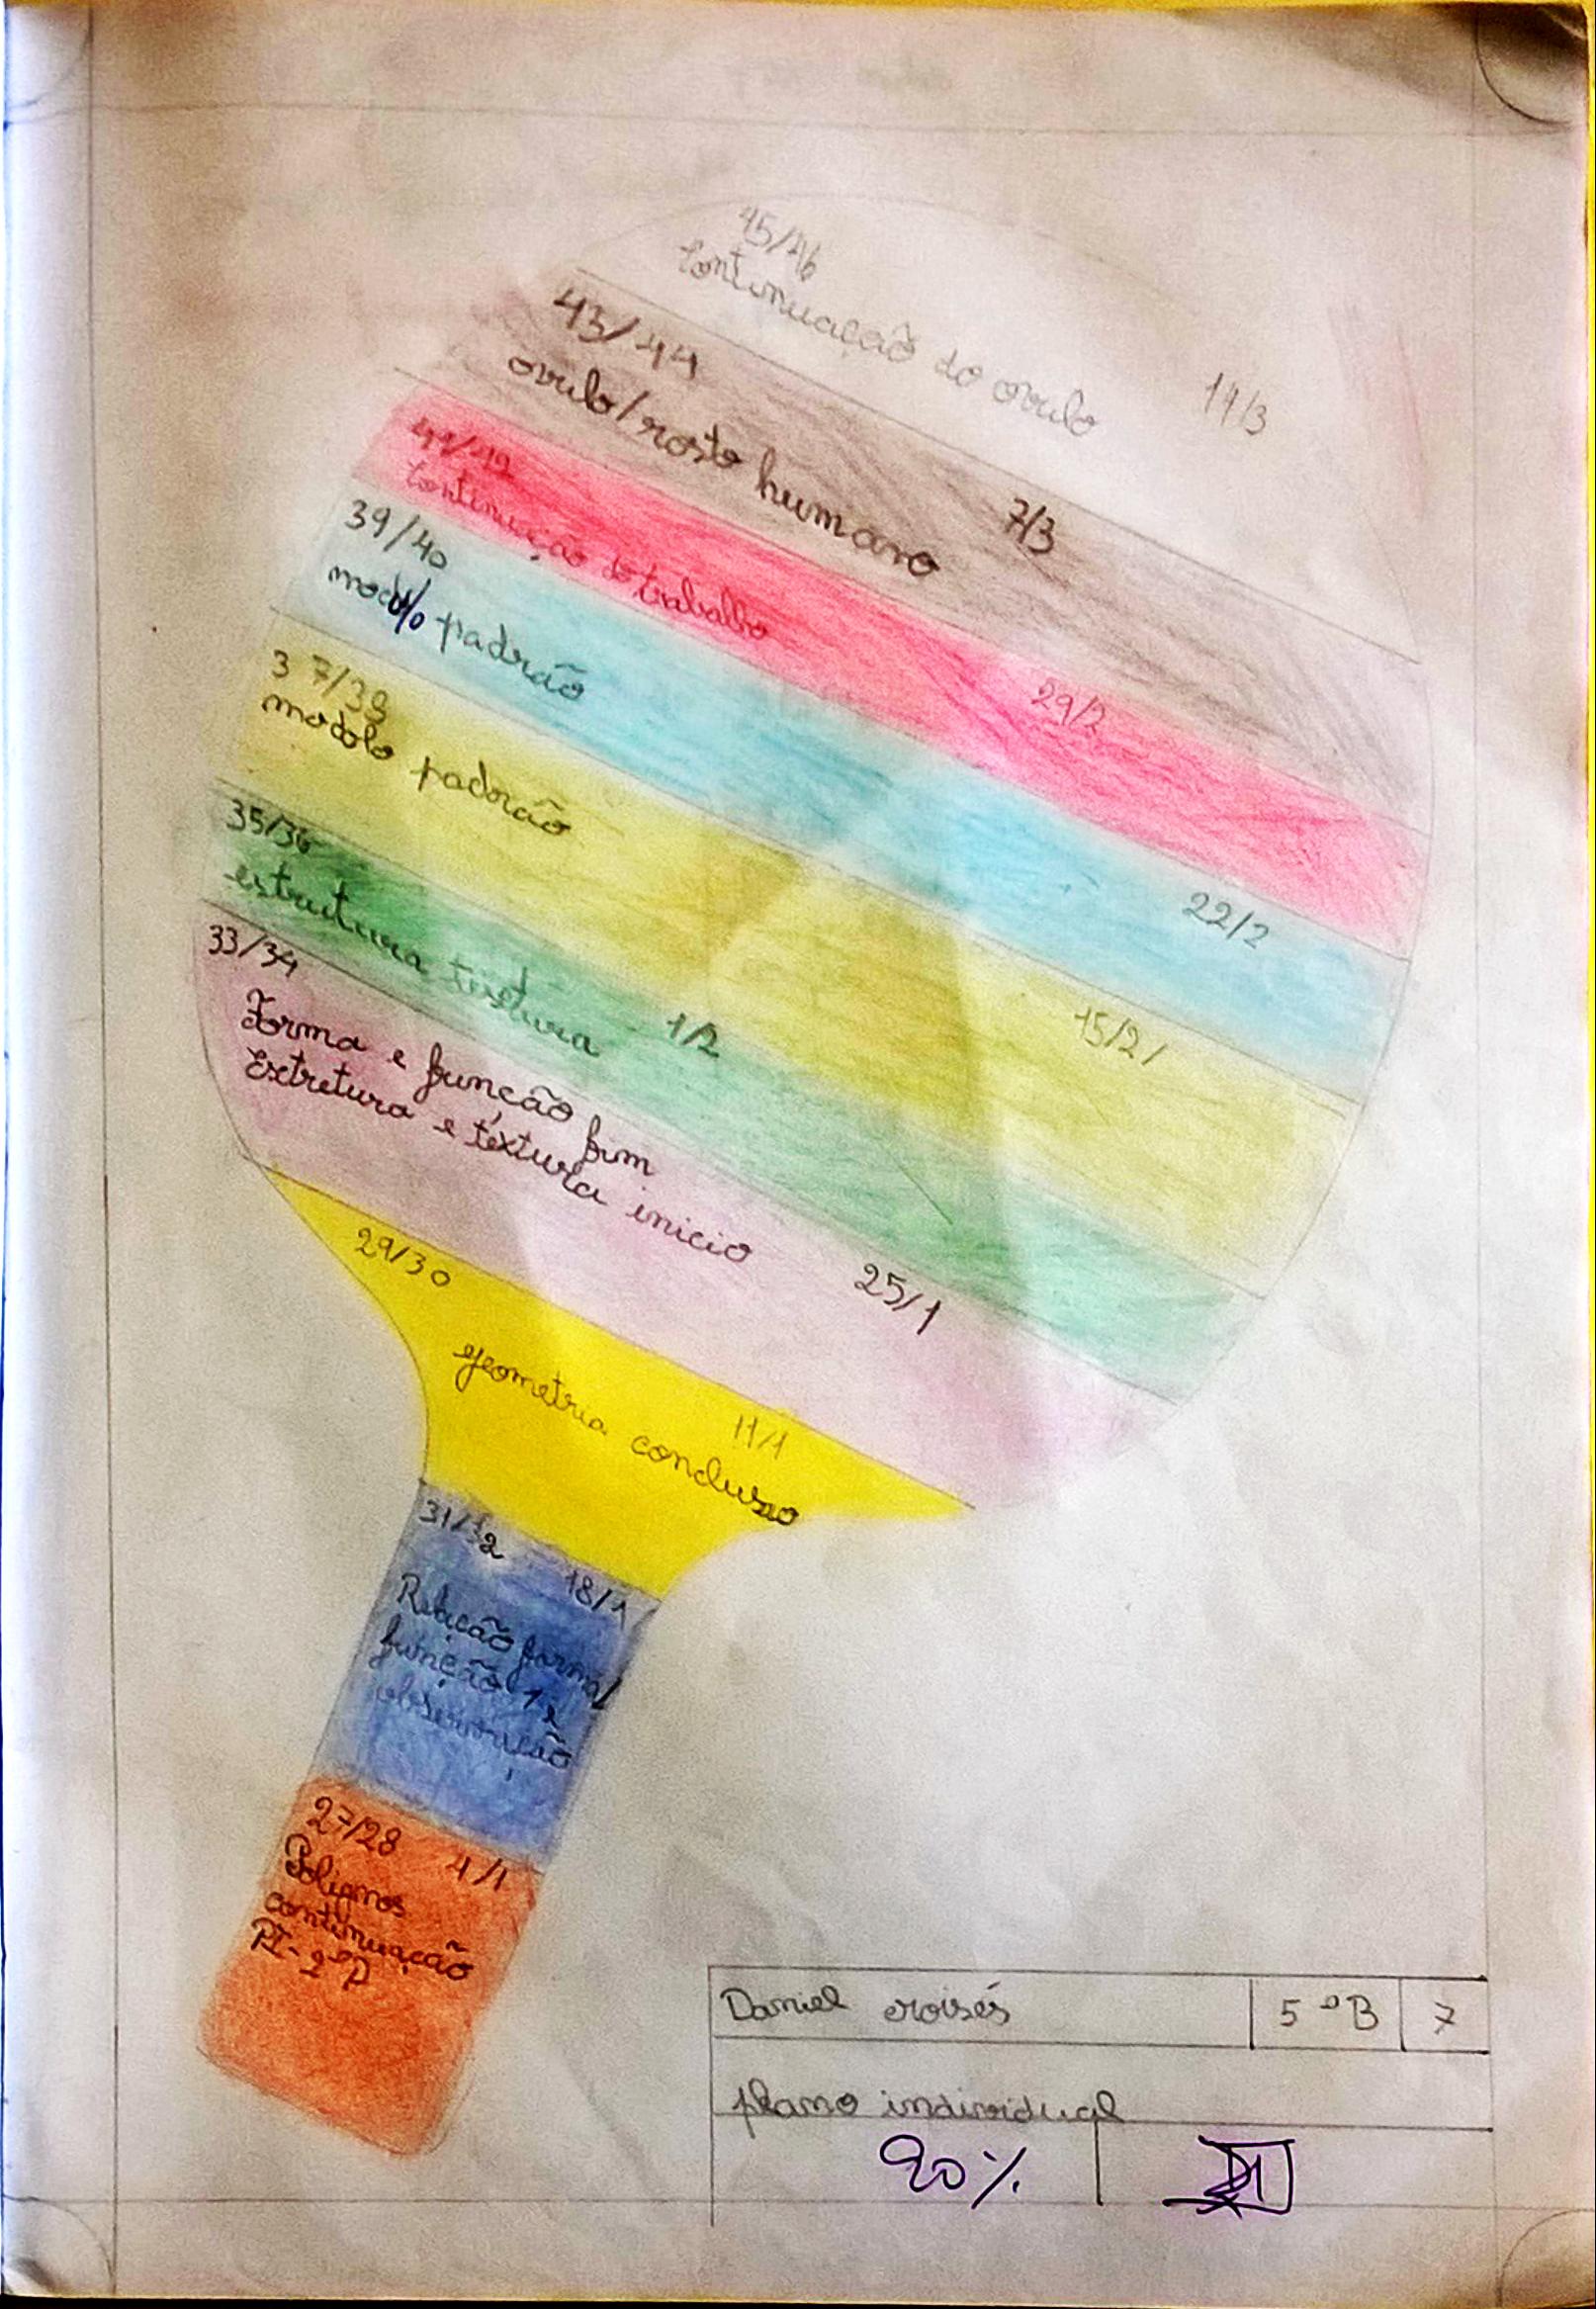 45/46
continuação do ovulo
14/3
43/44
ovulo/rosto humano
7/3
41/42
continuação do trabalho
29/2
39/40
modulo padrão
22/2
37/38
modolo padorão
15/2/
35/36
estrutura textura
1/2
33/34
Forma e função fim
Extretura e textura inicio
25/1
29/30
geometria concluzao
11/1
31/32
18/1
Relação forma/
função 1ª
observação
27/28
4/1
Polignos
continuação
PI-2ºP
Daniel
5ºB
7
plano individual
90%